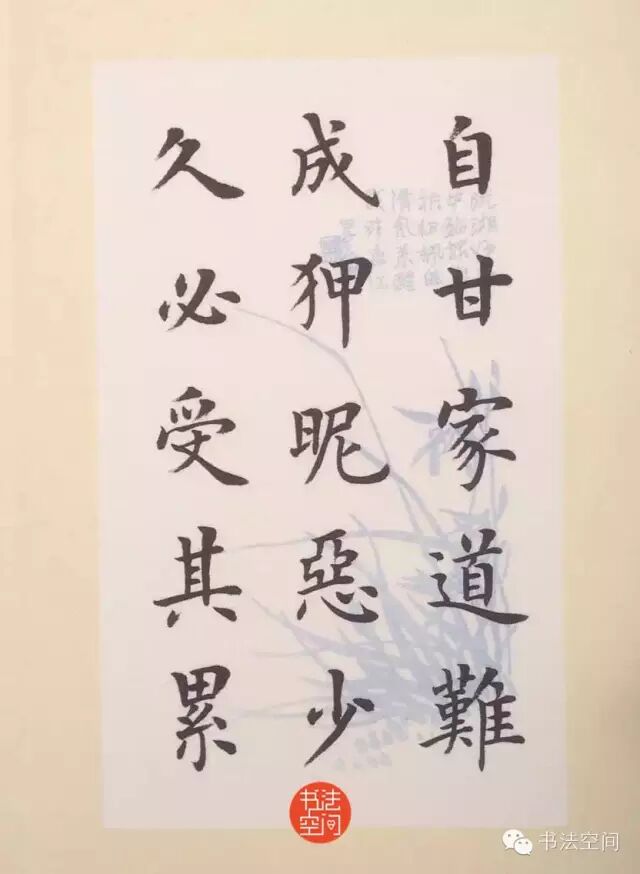 自甘家道難
成狎昵惡少
久必受其累
书法空间
书法空间